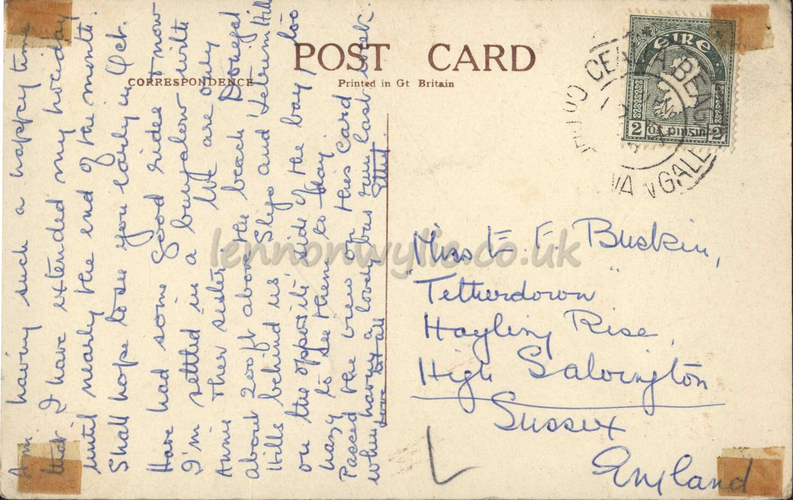 POST CARD
CORRESPONDENCE
Printed in Gt Britain
Am having such a happy time
that I have extended my holiday
until nearly the end of the month.
Shall hope to see you early in Oct.
Have had some good rides & now
I'm settled in a bungalow with
Annie & her sister. We are only
about 200ft above the beach, Donegal
Hills behind us & Sligo and Leitrim Hills
on the opposite side of the bay, too
hazy to see them to-day.
Passed the view of this card
when having a lovely bus run last week.
Love to all
Miss E. F. Buskin,
"Tetherdown"
Hayling Rise,
High Salvington
Sussex
England
éire
2 pinsin 2
lennonwylie.co.uk